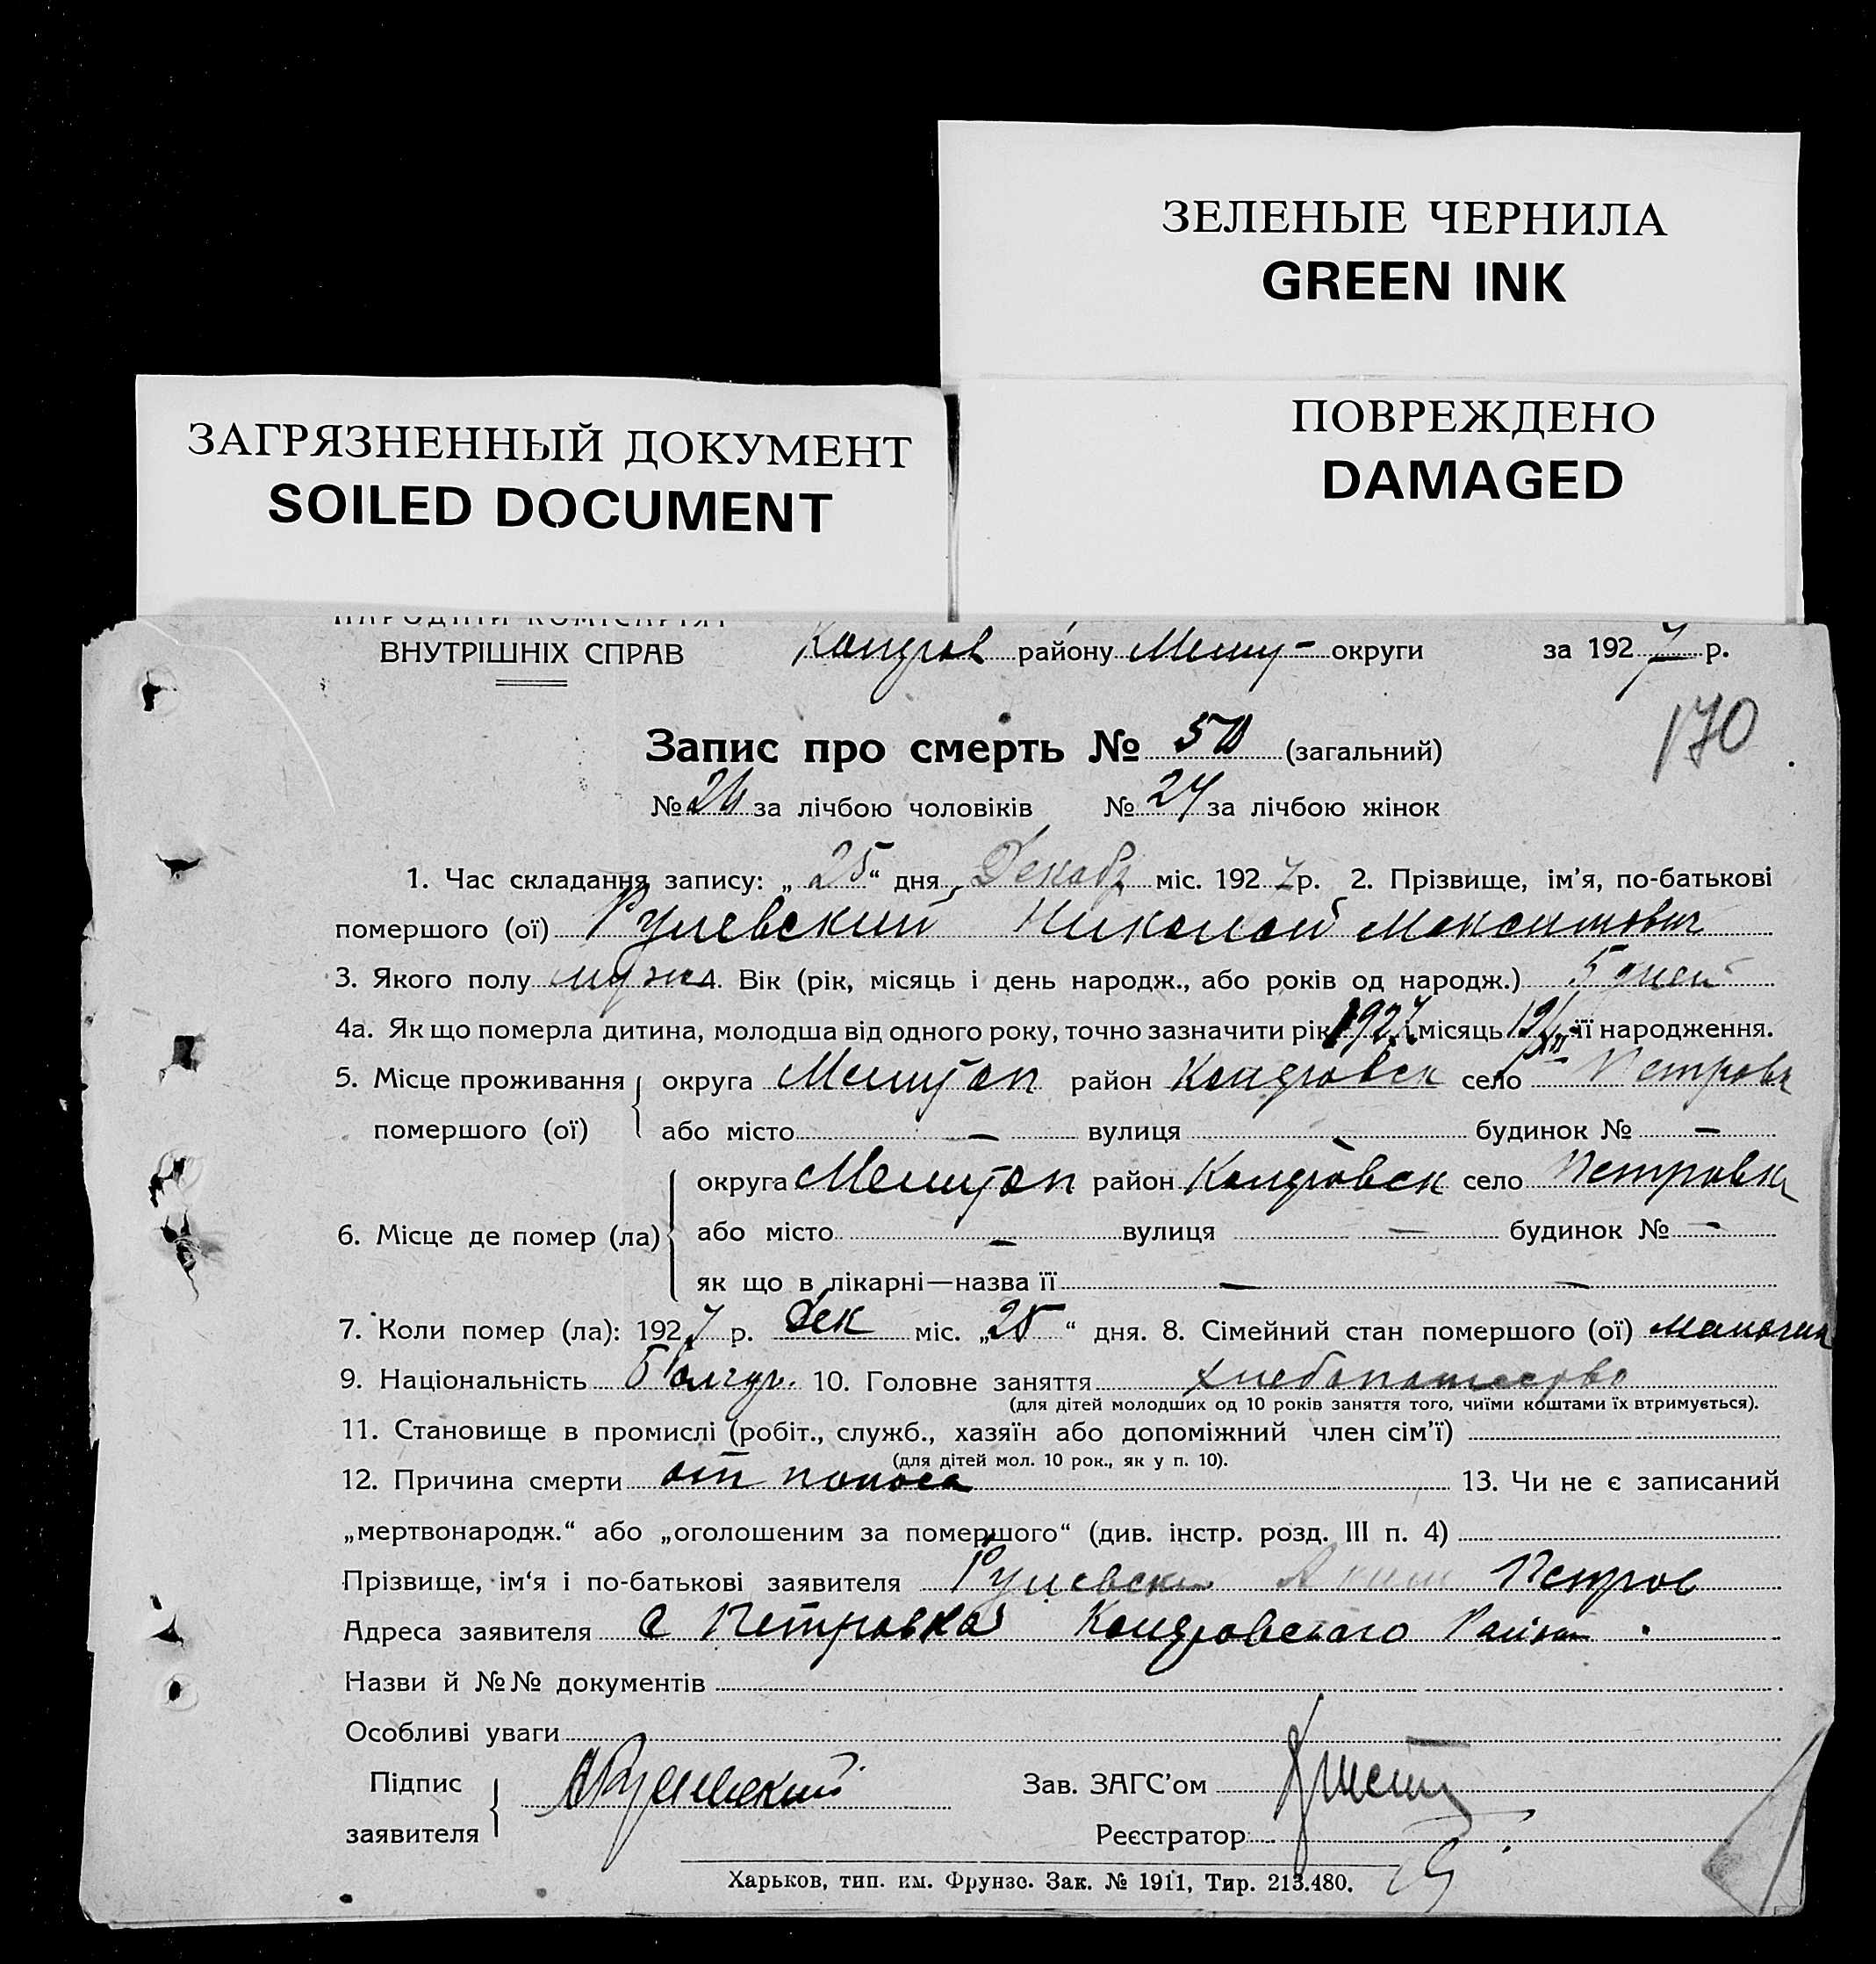 ЗЕЛЕНЫЕ ЧЕРНИЛА
GREEN INK
ПОВРЕЖДЕНО
DAMAGED
ЗАГРЯЗНЕННЫЙ ДОКУМЕНТ
SOILED DOCUMENT
НАРОДНІЙ КОМІСАРІЯТ
ВНУТРІШНІХ СПРАВ району округи за 1927 р.
170
Запис про смерть № (загальний)
№ за лічбою чоловіків № 24 за лічбою жінок
1. Час складання запису: „25“ дня Декабр міс. 1927 р. 2. Прізвище, ім'я, по-батькові
помершого (ої) Рулевский Николай Максимович
3. Якого полу муж 4. Вік (рік, місяць і день народж., або років од народж.) 5 дней
4а. Як що померла дитина, молодша від одного року, точно зазначити рік 1927 місяць її народження.
5. Місце проживання округа Мелитоп район село Петровк
помершого (ої) або місто — вулиця - будинок № —
округа Мелитоп район село Петровка
6. Місце де помер (ла) або місто — вулиця — будинок № —
як що в лікарні—назва її — —
7. Коли помер (ла): 1927 р. Дек міс. „25“ дня. 8. Сімейний стан помершого (ої)
9. Національність Болгар. 10. Головне заняття хлебопашество
(для дітей молодших од 10 років заняття того, чиїми коштами їх втримується).
11. Становище в промислі (робіт., служб., хазяїн або допоміжний член сім'ї)
(для дітей мол. 10 рок., як у п. 10).
12. Причина смерти от поноса 13. Чи не є записаний
„мертвонародж.“ або „оголошеним за помершого“ (див. інстр. розд. III п. 4)
Прізвище, ім'я і по-батькові заявителя Рулевски Петров
Адреса заявителя с Петровка Района
Назви й №№ документів
Особливі уваги
Підпис Рулевский Зав. ЗАГС'ом
заявителя Реєстратор
Харьков, тип. им. Фрунзе. Зак. № 1911, Тир. 213.480.